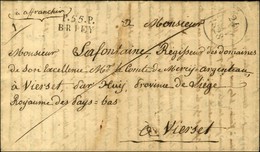 à affranchir
P.55.P.
BRIEY
a Monsieur
Monsieur Lafontaine, Régisseur des domaines
de son Excellence Mr. le Comte de Mercy-argenteau,
à Vierset, sur Huy, province de Liège
Royaume des pays-bas
à Vierset